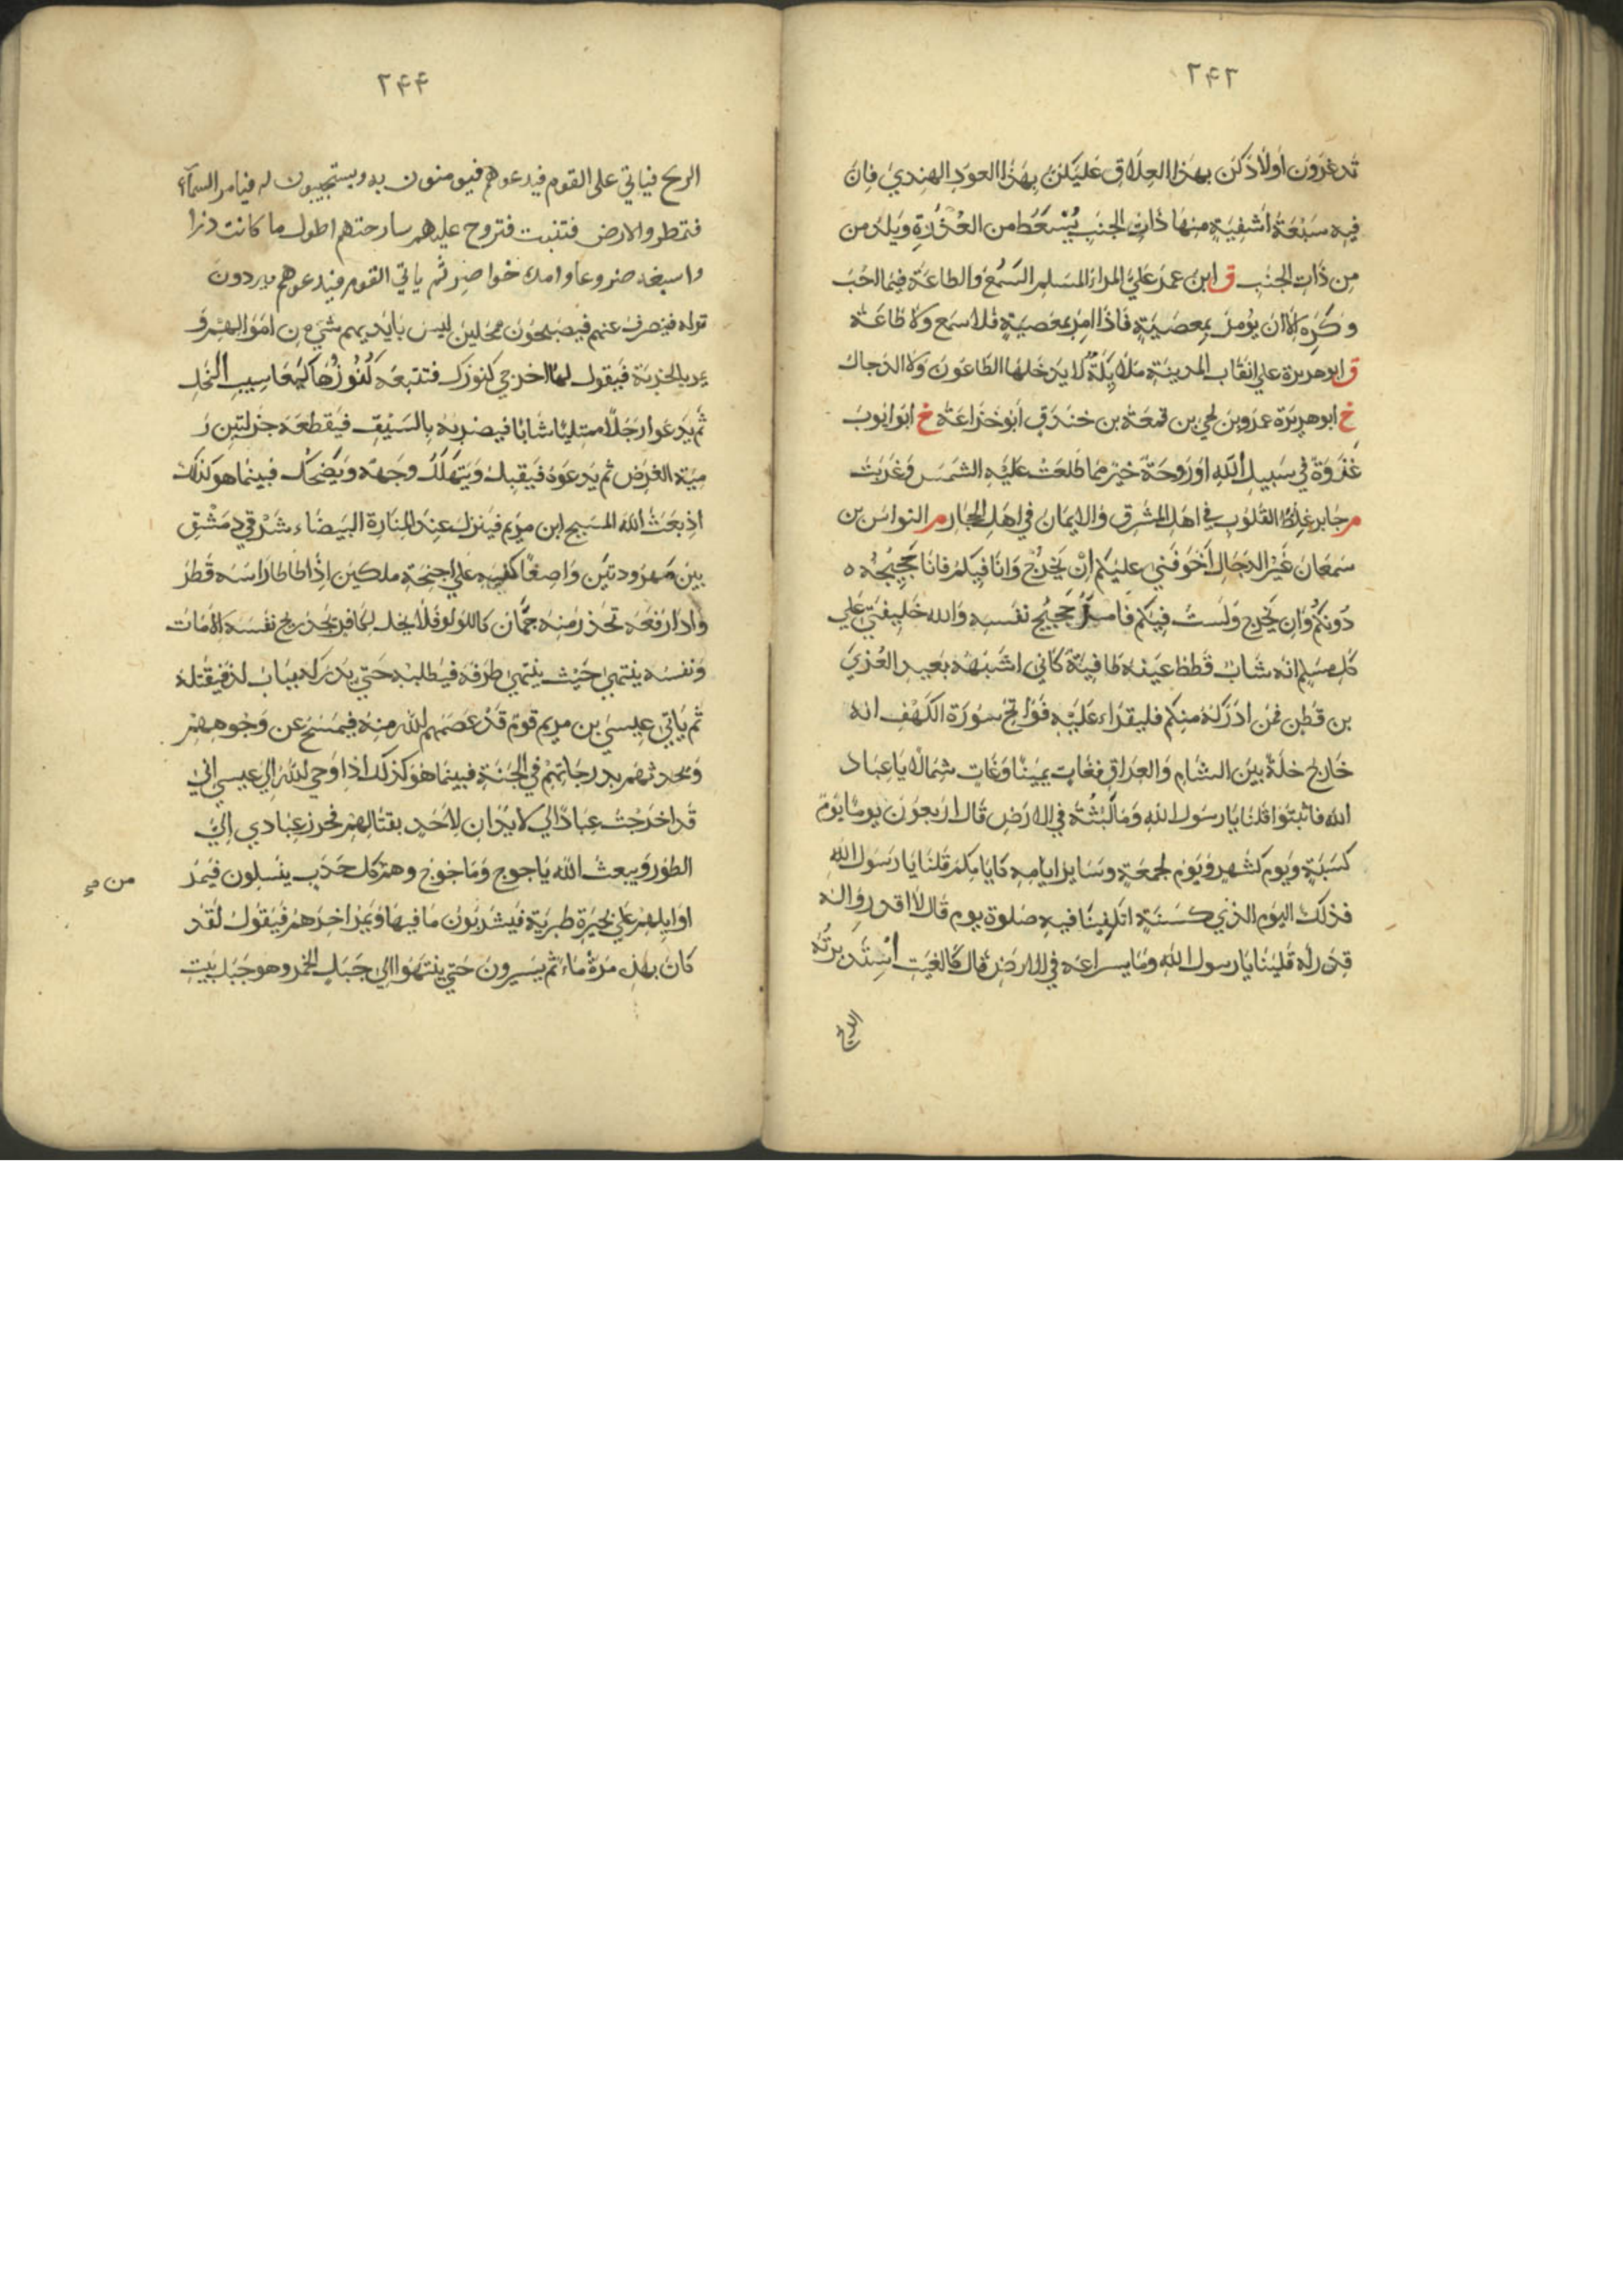 ٢٤٣
تدغرون اولادكن بهذا العلاق عليكن بهذا العود الهندي فان
فيه سبعة اشفية منها ذات الجنب يستعط من العذرة ويلد من
من ذات الجنب ق ابن عمر علي المراء المسلم السمع والطاعة فيما احب
وكره الا ان يومر بمعصية فاذا امر بمعصية فلا سمع ولا طاعة
ق ابو هريرة علي انقاب المدينة ملائكة لا يدخلها الطاعون ولا الدجال
خ ابو هريرة عمرو بن لحي بن قمعة بن خندق ابو خزاعة خ ابو ايوب
غدوة في سبيل الله او روحة خير مما طلعت عليه الشمس وغربت
م جابر غلظ القلوب في اهل المشرق والايمان في اهل الحجاز م النواس بن
سمعان غير الدجال اخوفني عليكم ان يخرج وانا فيكم فانا حجيجه ه
دونكم وان يخرج ولست فيكم فامرؤ حجيج نفسه والله خليفتي علي
كل مسلم انه شاب قطط عينه طافية كاني اشبهه بعبد العزي
بن قطن فمن ادركه منكم فليقراء عليه فواتح سورة الكهف انه
خارج خلة بين الشام والعراق فعاث يمينا وعاث شمالا يا عباد
الله فاثبتوا قلنا يا رسول الله وما لبثه في الارض قال اربعون يوما يوم
كسنة ويوم كشهر ويوم لجمعة وساير ايامه كايامكم قلنا يا رسول الله
فذلك اليوم الذي كسنة اتكفينا فيه صلوة يوم قال لا اقدروا له
قدره قلينا يا رسول الله وما يسراعه في الارض قال كالغيث استدبرته
الريح
٢٤٤
الريح فياتي على القوم فيدعوهم فيومنون به ويستجيبون له فيامر السمآء
فتمطر والارض فتنبت فتروح عليهم سارحتهم اطول ما كانت درا
واسبغه ضروعا وامده خواصر ثم ياتي القوم فيدعوهم فيردون
قوله فينصرف عنهم فيصبحون ممحلين ليس بايديهم شيء من اموالهم و
يمر بالخربة فيقول لها اخرجي كنوزك فتتبعه كنوزها كيعاسيب النخل
ثم يدعوا رجلا ممتليا شابا فيضربه بالسيف فيقطعه جزلتين ر
مية الغرض ثم يدعوه فيقبل ويتهلل وجهه ويضحك فبينما هو كذلك
اذ بعث الله المسيح ابن مريم فينزل عند المنارة البيضاء شرقي دمشق
بين مهرودتين واضعا كفيه علي اجنحة ملكين اذا طاطا راسه قطر
واذا رفعه تحدر منه جمان كاللولو فلا يحل لكافر يجد ريح نفسه الا مات
ونفسه ينتهي حيث ينتهي طرفه فيطلبه حتي يدركه بباب لد فيقتله
ثم ياتي عيسي بن مريم قوم قد عصمهم الله منه فيمسح عن وجوههم
ويحدثهم بدرجاتهم في الجنة فبينما هو كذلك اذا وحي الله الي عيسي اني
قد اخرجت عبادا لي لا يدان لاحد بقتالهم فحرز عبادي الي
الطور ويبعث الله ياجوج وماجوج وهم كل حدب ينسلون فيمر
من
اوايلهم علي بحيرة طبرية فيشربون ما فيها ويمر اخرهم فيقول لقد
كان بهذه مرة ماء ثم يسيرون حتي ينتهوا الي جبل الخمر وهو جبل بيت